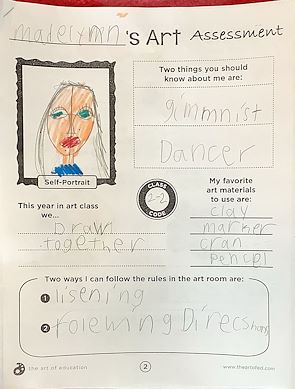 madelynn's Art Assessment
Two things you should
know about me are:
gimmnist
Dancer
Self-Portrait
CLASS
2-2
CODE
My favorite
art materials
to use are:
clay
marker
cran
pencel
This year in art class
we...
Draw
together
Two ways I can follow the rules in the art room are:
1 lisening
2 folewing Direcshons
the art of education
2
www.theartofed.com